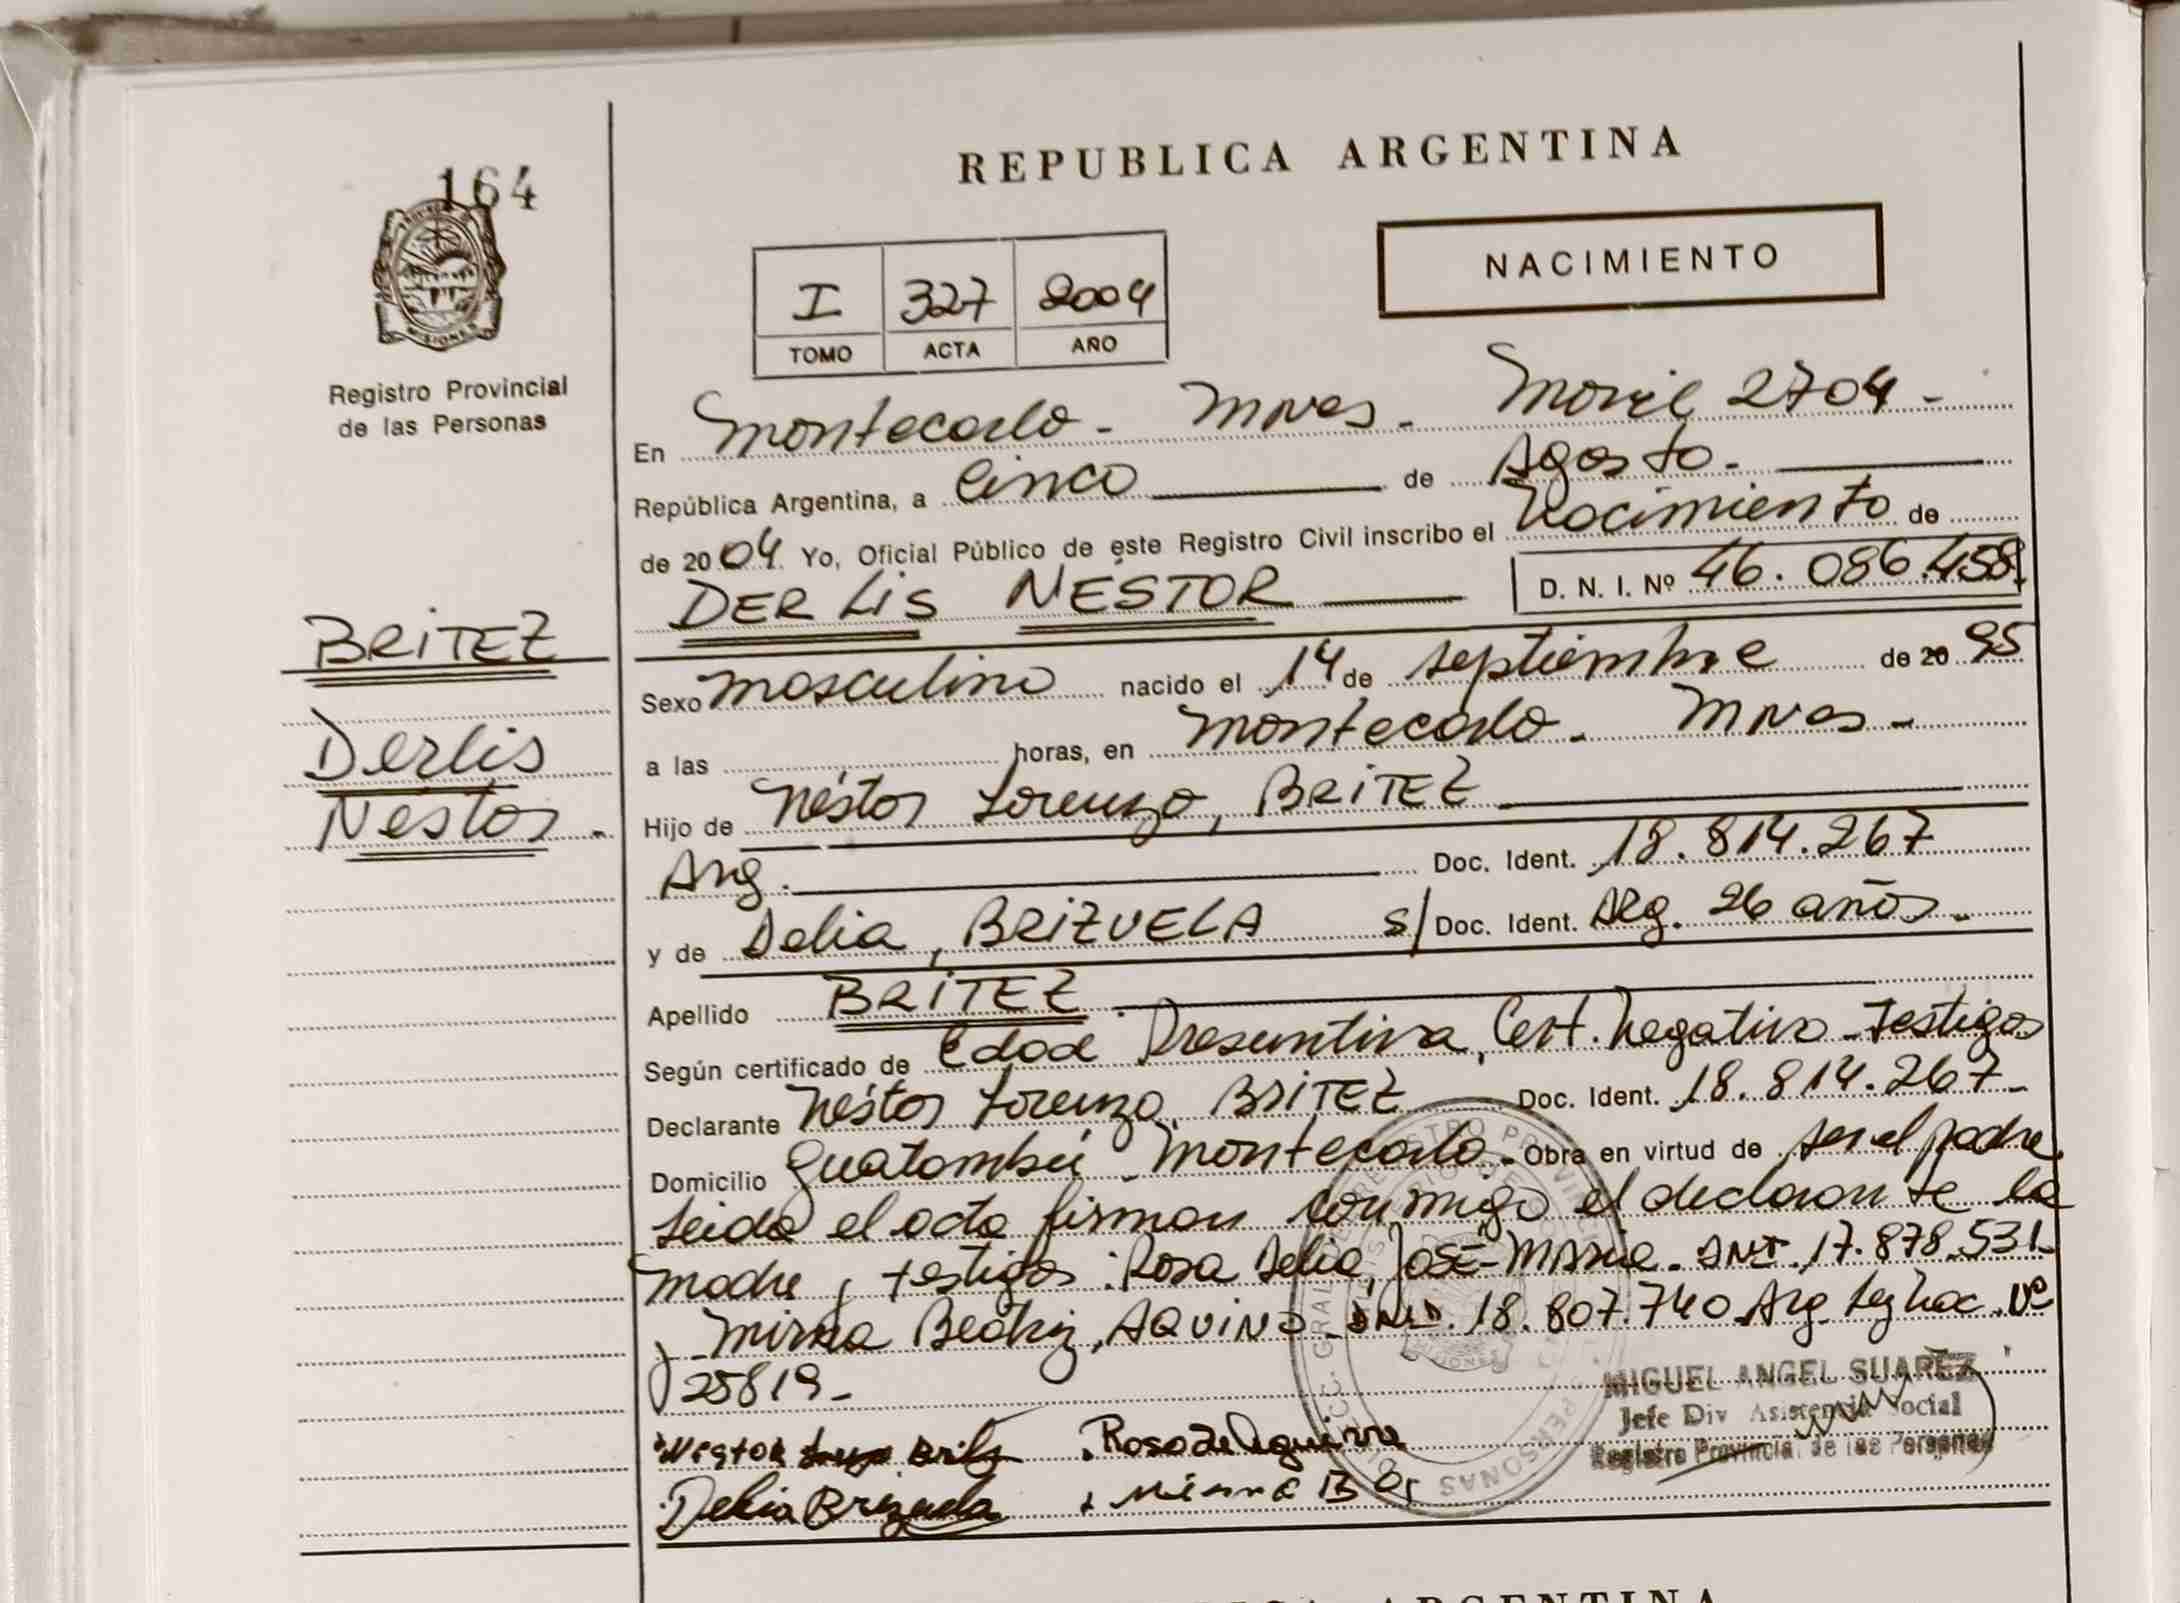 164
REPUBLICA ARGENTINA
NACIMIENTO
I 327 2004
TOMO ACTA AÑO
Registro Provincial
de las Personas
En Montecarlo - Mnes. Movil 2704 -
República Argentina, a Cinco de Agosto -
de 2004 Yo, Oficial Público de este Registro Civil inscribo el Nacimiento de
DERLIS NESTOR D. N. I. Nº 46.086.458
BRITEZ
Derlis
Néstor -
Sexo masculino nacido el 14 de septiembre de 20 95
a las horas, en Montecarlo - Mnes -
Hijo de Néstor Lorenzo, BRITEZ
Arg. Doc. Ident. 18.814.267
y de Delia, BRIZUELA s/ Doc. Ident. Arg. 26 años -
Apellido BRITEZ
Según certificado de Edad Presuntiva, Cert. Negativo - Testigos
Declarante Néstor Lorenzo BRITEZ Doc. Ident. 18.814.267 -
Domicilio Guatambú - Montecarlo - Obra en virtud de ser el padre
Leida el acta firman conmigo el declarante la
madre y testigos: Rosa Delia, JOSÉ MARIA - DNI. 17.878.531 -
y Mirna Beatriz, AQUINO - DNI. 18.807.740 Arg. Leg hac. Nº
25819 -
MIGUEL ANGEL SUAREZ
Jefe Div Asistencia Social
Registro Provincial de las Personas
Nestor Britez Rosa de Aguirre
Delia Brizuela Mirna B
REPUBLICA ARGENTINA